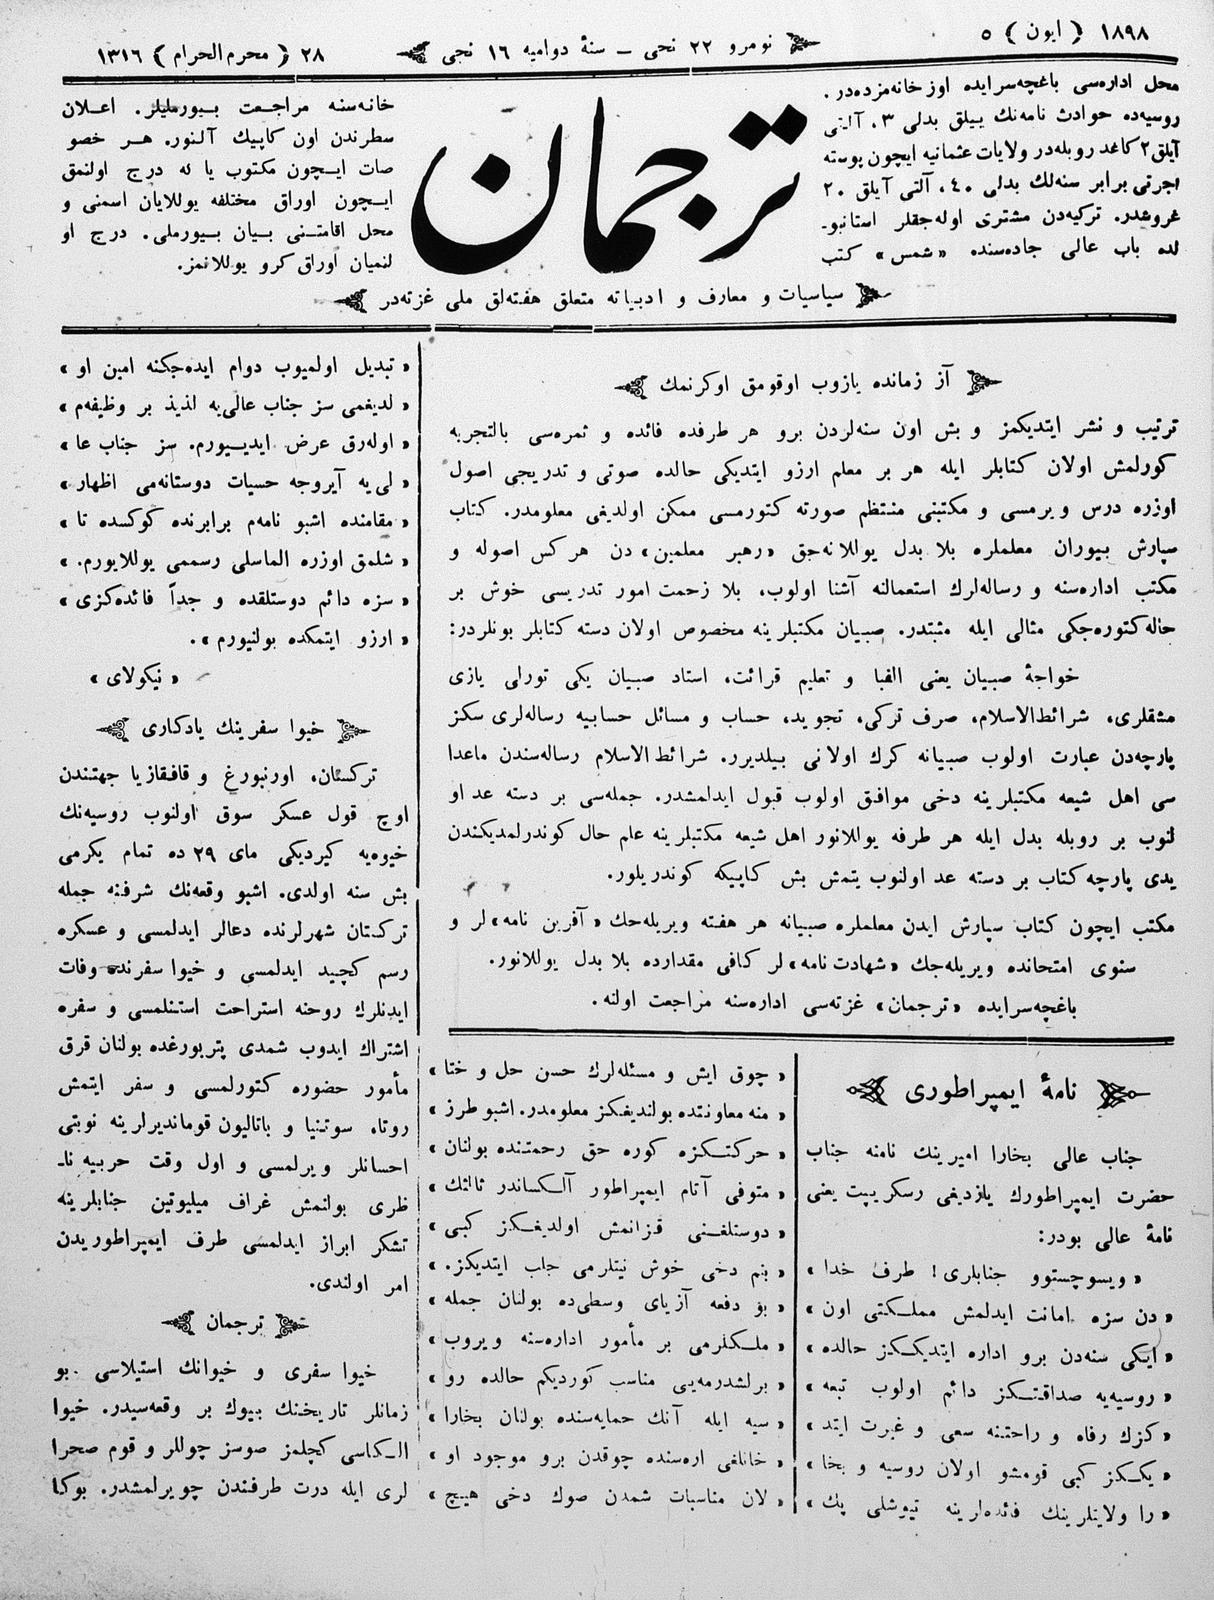 ١٨٩٨ ﴿ ايون ﴾ ٥
نومرو ٢٢ نجى — سنۀ دواميه ١٦ نجى
٢٨ ﴿ محرم الحرام ﴾ ١٣١٦
محل اداره‌سى باغچه‌سرايده اوز خانه‌مزده‌در.
روسيه‌ده حوادث نامه‌نك ييللق بدلى ٣، آلتى
آيلق ٢ كاغد روبله‌در ولايات عثمانيه ايچون پوسته
اجرتى برابر سنه‌لك بدلى ٤٠، آلتى آيلق ٢٠
غروشدر. تركيه‌دن مشترى اوله‌جقلر استانبو-
لده باب عالى جاده‌سنده «شمس» كتب
ترجمان
خانه‌سنه مراجعت بيورمليلر. اعلان
سطرندن اون كاپيك آلنور. هر خصو
صات ايچون مكتوب يا له درج اولنمق
ايچون اوراق مختلفه يوللايان اسمنى و
محل اقامتنى بيان بيورملى. درج او
لنميان اوراق كرو يوللانمز.
سياسيات و معارف و ادبياته متعلق هفته‌لق ملى غزته‌در
آز زمانده يازوب اوقومق اوكرنمك
ترتيب و نشر ايتديكمز و بش اون سنه‌لردن برو هر طرفده فائده و ثمره‌سى بالتجربه
كورلمش اولان كتابلر ايله هر بر معلم ارزو ايتديكى حالده صوتى و تدريجى اصول
اوزره درس ويرمسى و مكتبنى منتظم صورته كتورمسى ممكن اولديغى معلومدر. كتاب
سپارش بيوران معلملره بلا بدل يوللانه‌جق «رهبر معلمين» دن هركس اصوله و
مكتب اداره‌سنه و رساله‌لرك استعمالنه آشنا اولوب، بلا زحمت امور تدريسى خوش بر
حاله كتوره‌جكى مثالى ايله مثبتدر. صبيان مكتبلرينه مخصوص اولان دسته كتابلر بونلردر:
خواجۀ صبيان يعنى الفبا و تعليم قرائت، استاد صبيان يكى تورلى يازى
مشقلرى، شرائط‌الاسلام، صرف تركى، تجويد، حساب و مسائل حسابيه رساله‌لرى سكز
پارچه‌دن عبارت اولوب صبيانه كرك اولانى بيلديرر. شرائط‌الاسلام رساله‌سندن ماعدا
سى اهل شيعه مكتبلرينه دخى موافق اولوب قبول ايدلمشدر. جمله‌سى بر دسته عد او
لنوب بر روبله بدل ايله هر طرفه يوللانور اهل شيعه مكتبلرينه علم حال كوندرلمديكندن
يدى پارچه كتاب بر دسته عد اولنوب يتمش بش كاپيكه كوندريلور.
مكتب ايچون كتاب سپارش ايدن معلملره صبيانه هر هفته ويريله‌جك «آفرين نامه» لر و
سنوى امتحانده ويريله‌جك «شهادت نامه» لر كافى مقدارده بلا بدل يوللانور.
باغچه‌سرايده «ترجمان» غزته‌سى اداره‌سنه مراجعت اولنه.
نامۀ ايمپراطورى
جناب عالى بخارا اميرينك نامنه جناب
حضرت ايمپراطورك يازديغى رسكريپت يعنى
نامۀ عالى بودر:
«ويسوچستوو جنابلرى! طرف خدا»
«دن سزه امانت ايدلمش مملكتى اون»
«ايكى سنه‌دن برو اداره ايتديككز حالده»
«روسيه‌يه صداقتكز دائم اولوب تبعه»
«كزك رفاه و راحتنه سعى و غيرت ايتد»
«يككز كبى قومشو اولان روسيه و بخا»
«را ولايتلرينك فائده‌لرينه تيوشلى پك»
«چوق ايش و مسئله‌لرك حسن حل و ختا»
«منه معاونتده بولنديغكز معلومدر. اشبو طرز»
«حركتكزه كوره حق رحمتنده بولنان»
«متوفى آتام ايمپراطور آلكساندر ثالثك»
«دوستلغنى قزانمش اولديغكز كبى»
«بنم دخى خوش نيتلرمى جلب ايتديكز.»
«بو دفعه آزياى وسطى‌ده بولنان جمله»
«ملكلرمى بر مأمور اداره‌سنه ويروب»
«برلشدرمه‌يى مناسب كورديكم حالده رو»
«سيه ايله آنك حمايه‌سنده بولنان بخارا»
«خانلغى اره‌سنده چوقدن برو موجود او»
«لان مناسبات شمدن صوك دخى هيچ»
«تبديل اولميوب دوام ايده‌جكنه امين او»
«لديغمى سز جناب عالى‌يه لذيذ بر وظيفه‌م»
«اوله‌رق عرض ايديورم. سز جناب عا»
«لى‌يه آيروجه حسيات دوستانه‌مى اظهار»
«مقامنده اشبو نامه‌م برابرنده كوكسده تا»
«شلمق اوزره الماسلى رسممى يوللايورم.»
«سزه دائم دوستلقده و جداً فائده‌كزى»
«ارزو ايتمكده بولنيورم».
«نيكولاى»
خيوا سفرينك يادكارى
تركستان، اورنبورغ و قافقازيا جهتندن
اوچ قول عسكر سوق اولنوب روسيه‌نك
خيوه‌يه كيرديكى ماى ٢٩ ده تمام يكرمى
بش سنه اولدى. اشبو وقعه‌نك شرفنه جمله
تركستان شهرلرنده دعالر ايدلمسى و عسكره
رسم كچيد ايدلمسى و خيوا سفرنده وفات
ايدنلرك روحنه استراحت استنلمسى و سفره
اشتراك ايدوب شمدى پتربورغده بولنان قرق
مأمور حضوره كتورلمسى و سفر ايتمش
روتا، سوتنيا و باتاليون قومانديرلرينه نوبتى
احسانلر ويرلمسى و اول وقت حربيه نا-
ظرى بولنمش غراف ميليوتين جنابلرينه
تشكر ابراز ايدلمسى طرف ايمپراطوريدن
امر اولندى.
ترجمان
خيوا سفرى و خيوانك استيلاسى بو
زمانلر تاريخنك بيوك بر وقعه‌سيدر. خيوا
الكاسى كچلمز صوسز چوللر و قوم صحرا
لرى ايله درت طرفندن چويرلمشدر. بوكا